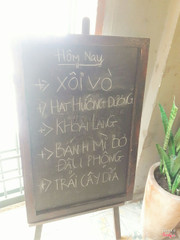 Hôm Nay
+) XÔI VÒ
+) HẠT HƯỚNG DƯƠNG
+) KHOAI LANG
+) BÁNH MÌ BƠ
ĐẬU PHỘNG
+) TRÁI CÂY DĨA